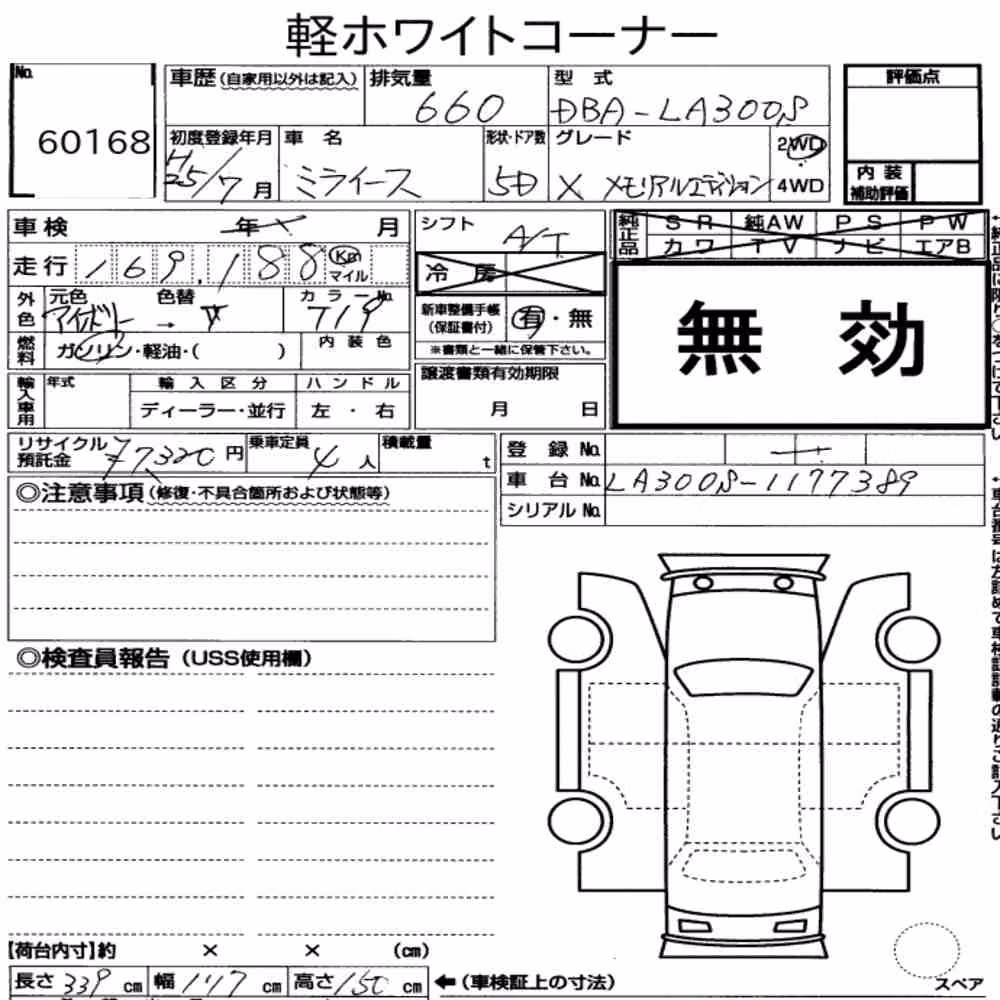 軽ホワイトコーナー
No. 60168
車歴(自家用以外は記入) 排気量 660 型 式 DBA-LA300S
評価点
初度登録年月 H25/7月 車 名 ミライース 形状・ドア数 5D グレード X メモリアルエディション 2WD 4WD
内 装 補助評価
車検 年 月
シフト A/T
純正品 SR 純AW PS PW
カワ TV ナビ エアB
走行 169,188 Km マイル
冷 房
外色 元色 アイボリー → 色替 カラーNo. T19
新車整備手帳(保証書付) 有・無
※書類と一緒に保管下さい。
無 効
燃料 ガソリン・軽油・( ) 内装色
輸入車用 年式 輸入区分 ハンドル
ディーラー・並行 左・右
譲渡書類有効期限
月 日
リサイクル預託金 ¥7320円 乗車定員 4人 積載量 t
登 録 No.
車 台 No. LA300S-1177389
シリアル No.
◎注意事項(修復・不具合箇所および状態等)
◎検査員報告(USS使用欄)
【荷台内寸】約 × × (cm)
長さ 339 cm 幅 147 cm 高さ 150 cm ←(車検証上の寸法)
スペア